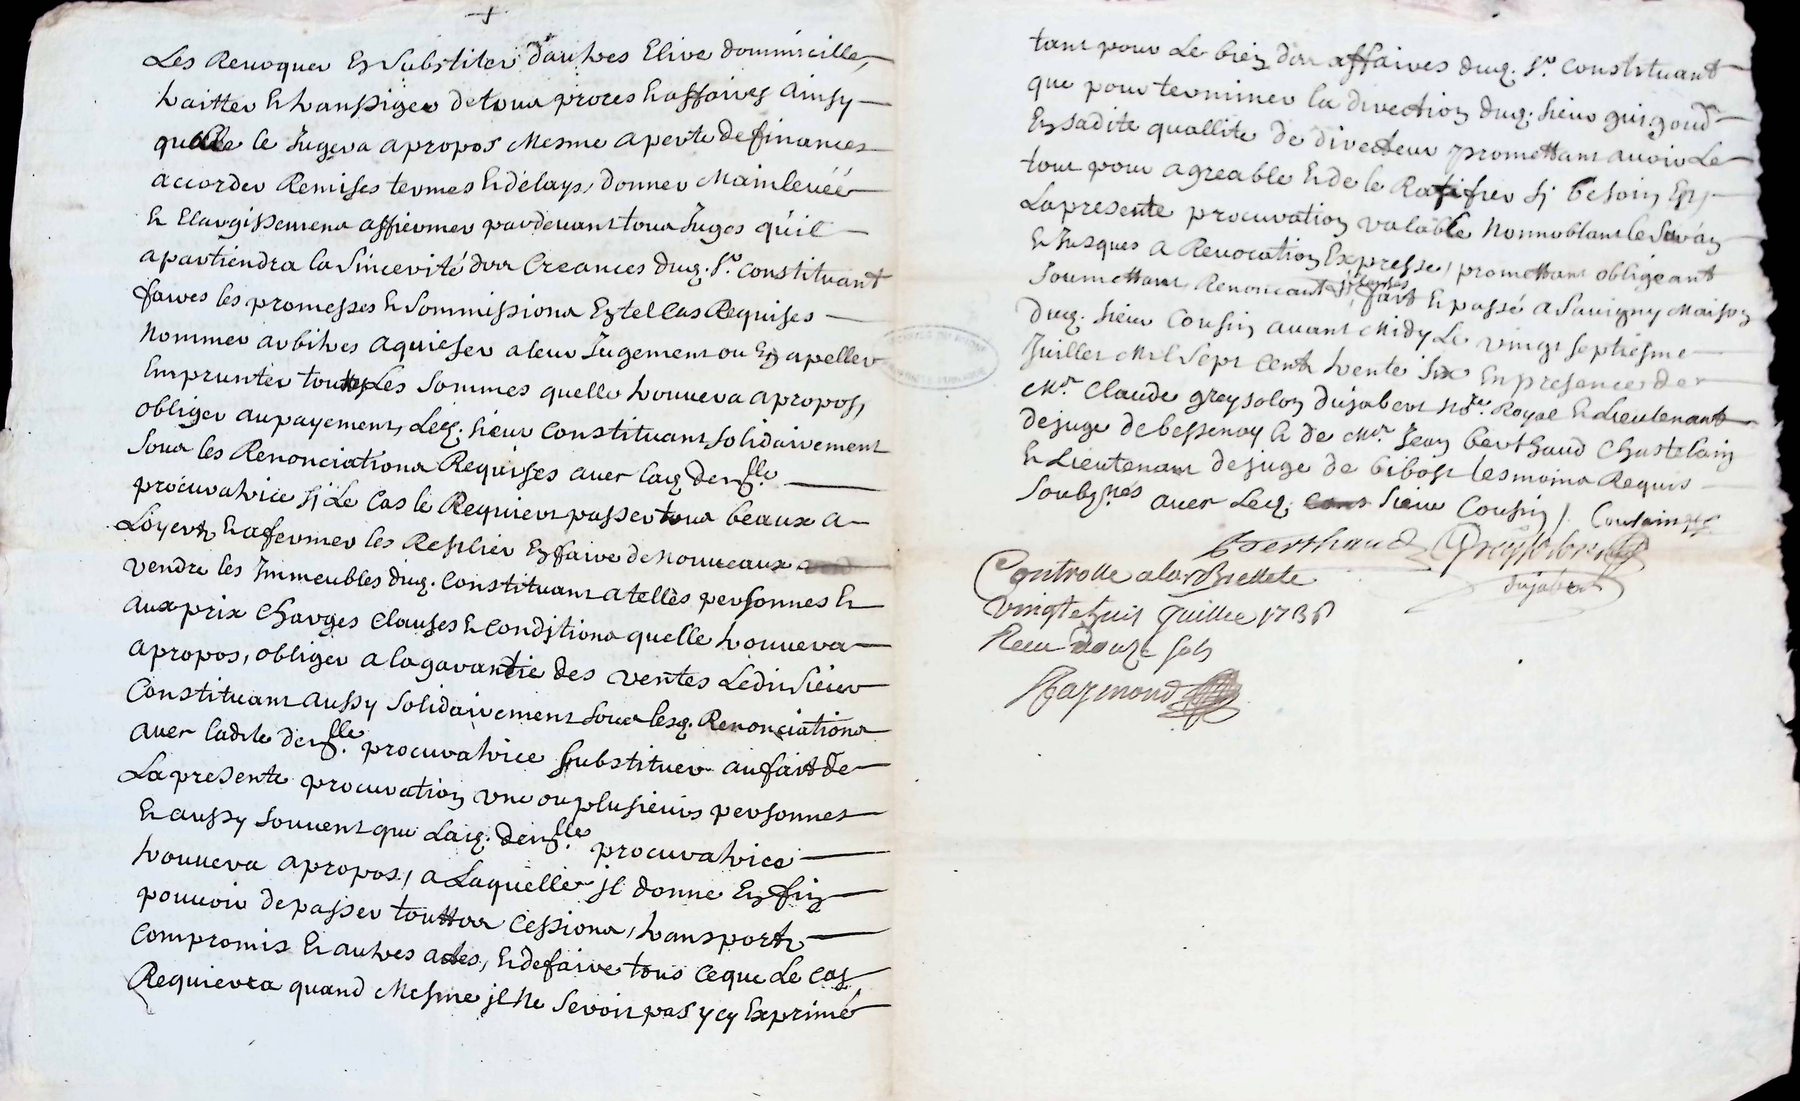 Les Revoquer En Substituer d'autres Elire dommicille,
traitter Et transsiger de tous proces Et affaires Ainsy
quelle le Jugera apropos Mesme a perte de finances
accorder Remises termes Et delays, donner Mainlevéé
Et Elargissement affirmer pardevant tous Juges qu'il
apartiendra la Sincerité des Creances dud. Sr. Constituant
faires les promesses Et Sommissions En tel Cas Requises
Nommer arbitres aquieser a leur Jugement ou En apeller
Emprunter touttes Les Sommes quelle trouvera apropos,
obliger au payement, Led. Sieur Constituant Solidairement
Sous les Renonciations Requises avec lad. demlle.
procuratrice Sj Le Cas le Requiert passer tous beaux a
Loyers Et afermer les Resilier En faire de Nouveaux
vendre les Jmmeubles dud. Constituant a telles personnes Et
aux prix Charges Clauses Et Conditions quelle trouvera
apropos, obliger a la garantie des ventes Ledit Sieur
Constituant aussy Solidairement Sous lesd. Renonciations
avec ladite demlle. procuratrice Substituer au fait de
La presente procuration une ou plusieurs personnes
Et aussy Souvent que Lad. demlle. procuratrice
trouvera apropos, a Laquelle jl donne En fin
pouvoir de passer touttes Cessions, transports
Compromis Et autres actes, Et de faire tous Ceque Le Cas
Requierra quand Mesme jl Ne Seroit pas y cy Exprimé
tant pour Le bien des affaires dud. Sr. Constituant
que pour terminer la direction dud. Sieur guigoud
En sadite quallité de directeur promettant avoir Le
tout pour agreable Et de le Ratifier Sj besoin Est,
La presente procuration valable Nonnobtant le Suran
Et Jusques a Revocation Expresse, promettant obligeant
Soumettant Renonceant fait Et passé a Savigny Maison
dud. Sieur Cousin avant Midy Le vingt Septiesme
Juillet Mil Sept Cent trente Six En presence de
Mr. Claude greysolon dujabert Nore. Royal Et Lieutenant
de juge de bessenay Et de Mr. Jean berthaud Chastelain
Et Lieutenant de juge de bibost tesmoins Requis
Soubsnés avec Led. Sieur Cousin,
Berthaud Greysolon
dujabert
Controlle a larBresle le
vingt huit Juillet 1736
Receu douze sols
Raymond